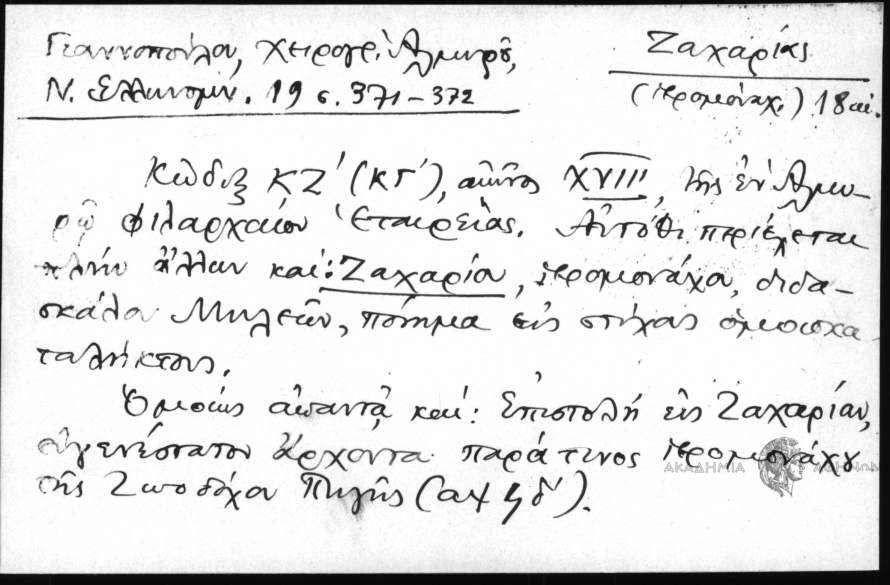 Γιαννοπούλου, Χειρογρ. Ἁλμυροῦ,
Ν. Ἑλληνομν. 19 σ. 371-372
Ζαχαρίας
(ἱερομόναχ.) 18 αἰ.
Κῶδιξ ΚΖ' (ΚΓ'), αἰῶνος XVIII, τῆς ἐν Ἁλμυ-
ρῷ Φιλαρχαίου Ἑταιρείας. Αὐτόθι περιέχεται
πλὴν ἄλλων καί: Ζαχαρίου, ἱερομονάχου, διδα-
σκάλου Μηλεῶν, ποίημα εἰς στίχους ὁμοιοκα
ταλήκτους.
Ὁμοίως ἀπαντᾷ καί: Ἐπιστολὴ εἰς Ζαχαρίαν,
εὐγενέστατον ἄρχοντα παρά τινος ἱερομονάχου
τῆς Ζωοδόχου Πηγῆς (αψϟδ').
ΑΚΑΔΗΜΙΑ ΑΘΗΝΩΝ